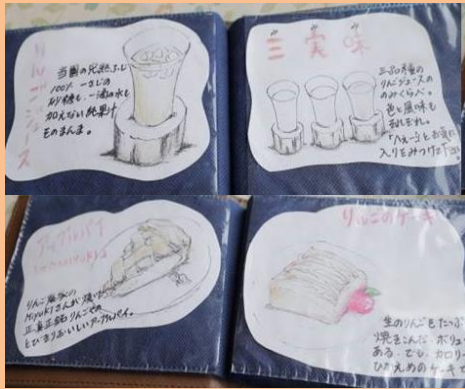 りんごジュース
当園の完熟ふじ
100% 一さじの
砂糖も、一滴の水も
加えない純果汁
そのまんま。
三実味
三品種の
りんごジュースの
のみくらべ。
色も風味も
それぞれ。
「へぇ〜」とお気に
入りをみつけて
アップルパイ
りんご農家の
Miyukiさんが焼いた
正真正銘りんごやの
とびきりおいしいアップルパイ。
りんごのケーキ
生のりんごをたっぷ
焼きこんだ、ボリュー
ある、でも、カロリー
ひかえめのケーキで